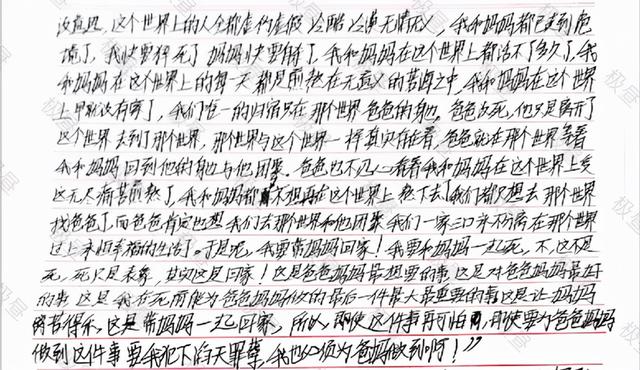 这个世界上的人全都虚伪虚假 冷酷 冷漠 无情无义,我和妈妈都已走到危
境了,我快要得死了 妈妈快要得死了,我和妈妈在这个世界上都活不了多久了,我
和妈妈在这个世界上的每一天 都是煎熬在无意义的苦海之中,我和妈妈在这个世界
上早就没有家了,我们唯一的归宿只在 那个世界 爸爸的身边,爸爸没死,他只是离开了
这个世界 去到了那个世界,那个世界与这个世界一样真实存在着,爸爸就在那个世界等着
我和妈妈 回到他的身边与他团聚。爸爸也不忍心看着我和妈妈在这个世界上受
这无尽痛苦煎熬了,我和妈妈都不想再在这个世界上 熬下去了我们都只想去 那个世界
找爸爸了,而爸爸肯定也想 我们去那个世界和他团聚 我们一家三口永不分离在那个世界
过上永恒幸福的生活了。于是呢,我要带妈妈回家!我要和妈妈一起死,不,这不是
死,死只是表象,其实这是回家!这是爸爸妈妈最想要的事 这是对爸爸妈妈最好
的事 这是 我在死前能为爸爸妈妈做的最后一件最大最重要的事 这是让妈妈
离苦得乐,这是带妈妈一起回家,所以,即使这件事再可怕,即使要为爸爸妈妈
做到这件事 要我犯下滔天罪孽,我也必须为爸妈做到啊!”
极昼